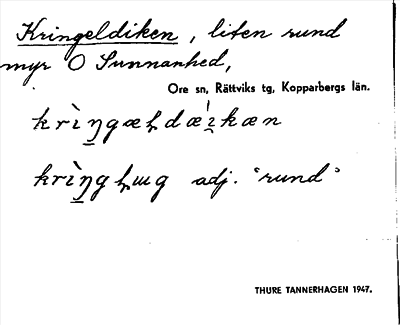 Kringeldiken, liten rund
myr O Sunnanhed,
Ore sn, Rättviks tg, Kopparbergs län.
krìŋgæɫdæ̀ikæn
krìŋgɫɯg adj. "rund"
THURE TANNERHAGEN 1947.